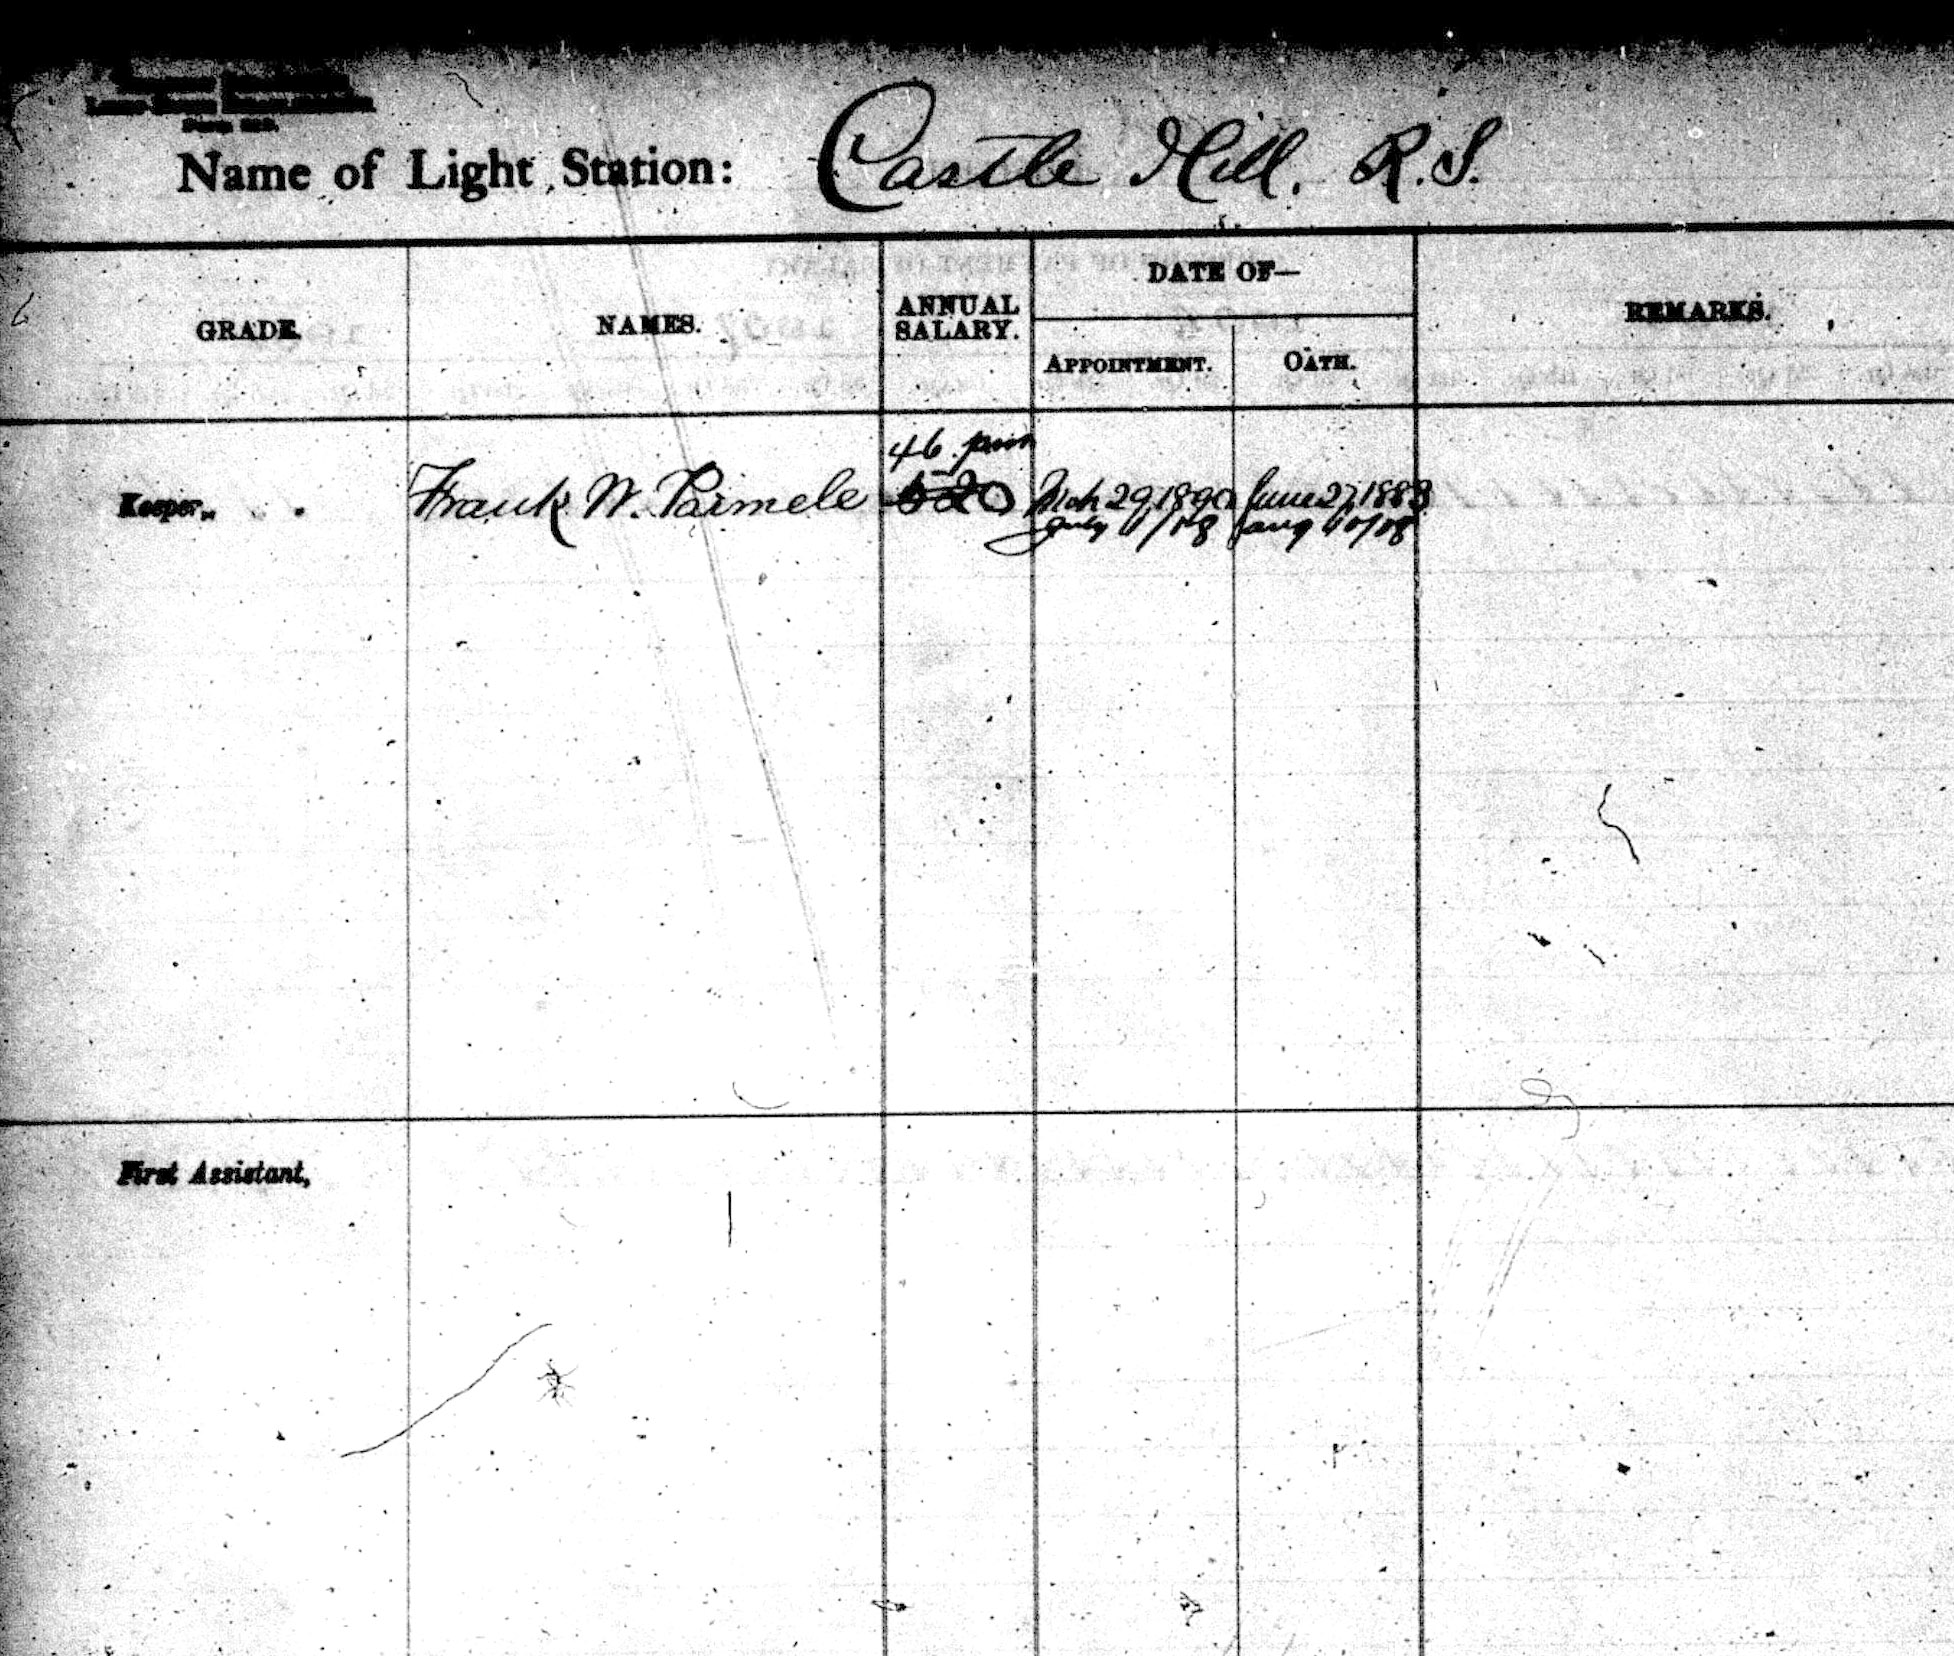 Form
Name of Light Station: Castle Hill, R.S.
DATE OF—
GRADE. NAMES. ANNUAL SALARY. REMARKS.
APPOINTMENT. OATH.
46
Keeper, Frank W. Parmele 520 Mch 29, 1890 June 27, 1888
July 1/18 Aug 10/18
First Assistant,